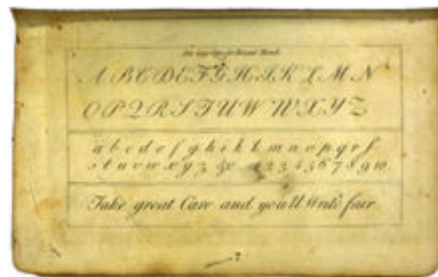 A B C D E F G H I K L M N
O P Q R S T U W W X Y Z
a b c d e f g h i k l m n o p q r s
s t u v w x y z & 1 2 3 4 5 6 7 8 9 10
Take great Care and you'll Write fair